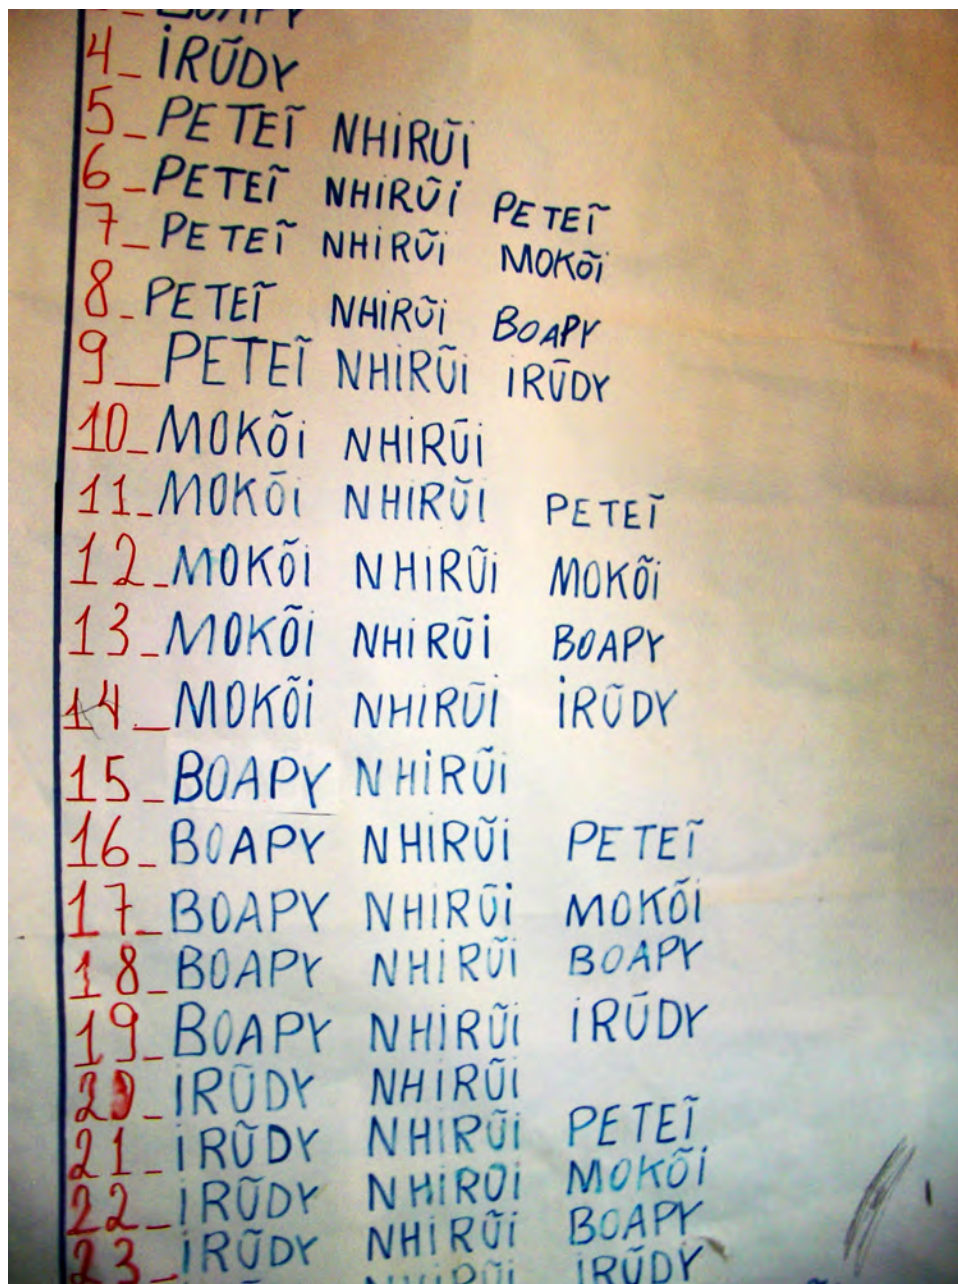 BOAPY
4_ IRŨDY
5_ PETEĨ NHIRŨI
6_ PETEĨ NHIRŨI PETEĨ
7_ PETEĨ NHIRŨI MOKÕI
8_ PETEĨ NHIRŨI BOAPY
9_ PETEĨ NHIRŨI IRŨDY
10_ MOKÕI NHIRŨI
11_ MOKÕI NHIRŨI PETEĨ
12_ MOKÕI NHIRŨI MOKÕI
13_ MOKÕI NHIRŨI BOAPY
14_ MOKÕI NHIRŨI IRŨDY
15_ BOAPY NHIRŨI
16_ BOAPY NHIRŨI PETEĨ
17_ BOAPY NHIRŨI MOKÕI
18_ BOAPY NHIRŨI BOAPY
19_ BOAPY NHIRŨI IRŨDY
20_ IRŨDY NHIRŨI
21_ IRŨDY NHIRŨI PETEĨ
22_ IRŨDY NHIRŨI MOKÕI
23_ IRŨDY NHIRŨI BOAPY
NHIRŨI IRŨDY